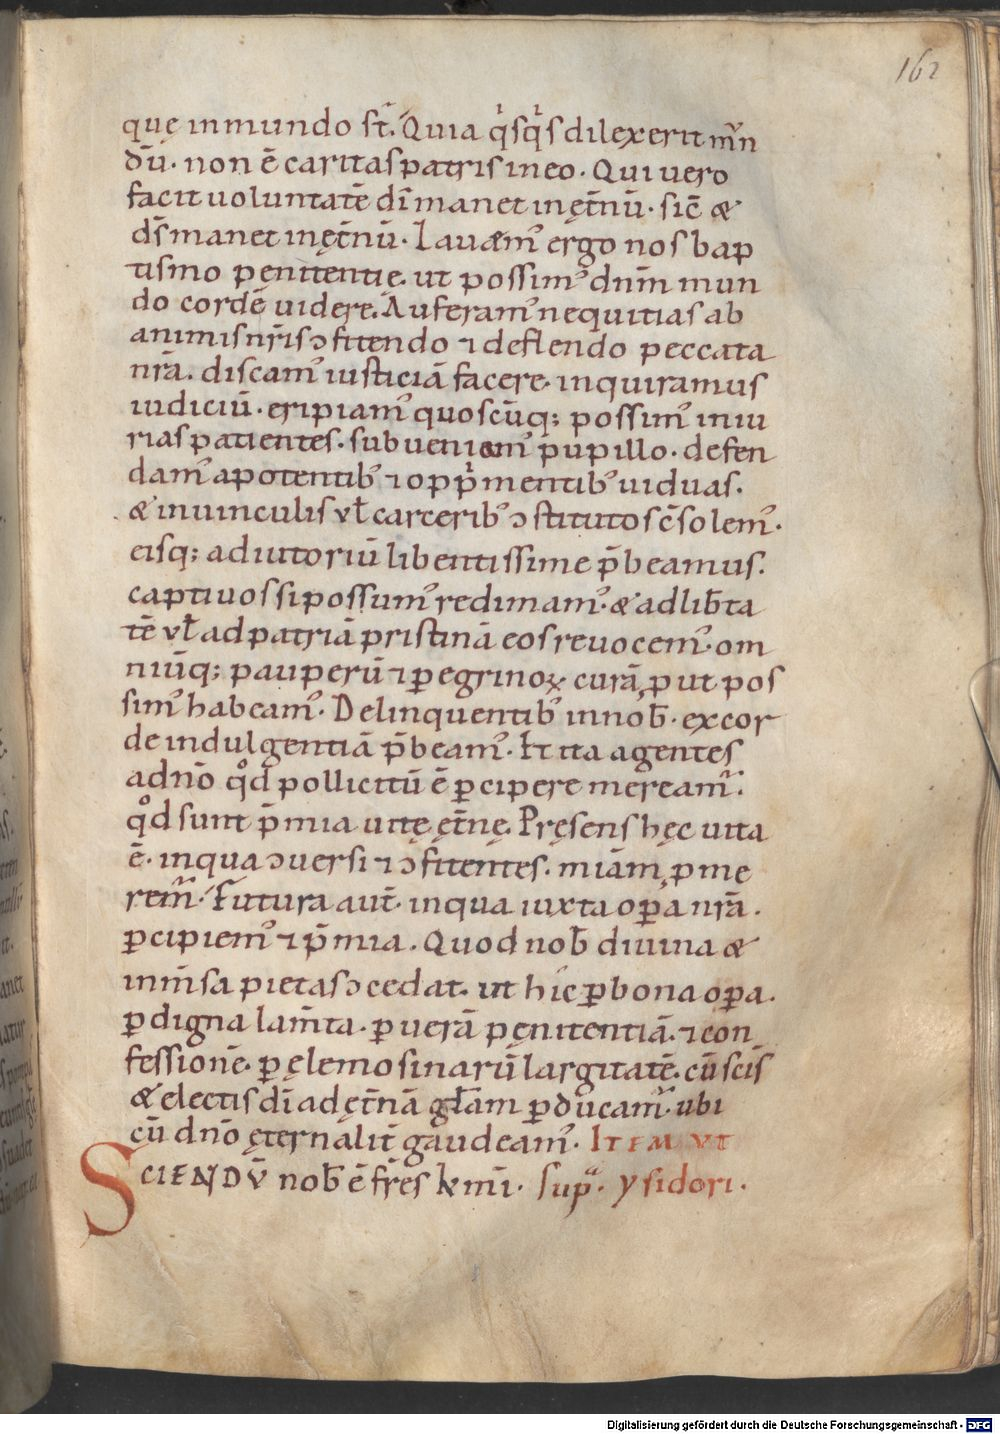 162
quę in mundo st̄. Quia qͥsqͥs dilexerit mūn
dū. non ē caritas patris in eo. Qui uero
facit uoluntatē dī manet in ęt̄nū. sic̄ &
ds̄ manet in ęt̄nū. Lauemꝰ ergo nos bap
tismo penitentię. ut possimꝰ dnm̄ mun
do corde uidere. Auferamꝰ nequitias ab
animis nr̄is ↄfitendo ⁊ deflendo peccata
nr̄a. discamꝰ iusticiā facere. inquiramus
iudiciū. eripiamꝰ quoscūq; possimꝰ iniu
rias patientes. subueniamꝰ pupillo. defen
damꝰ a potentibꝰ ⁊ oppͥmentibꝰ uiduas.
& in uinculis vł carceribꝰ ↄstitutos c̄solemꝰ.
eisq; adiutoriū libentissime p̄beamus.
captiuos si possumꝰ redimamꝰ. & ad lib̄ta
tē vł ad patriā pristinā eos reuocemꝰ. om
niūq; pauperū ⁊ ꝑegrinoꝝ curā, put pos
simꝰ habeamꝰ. Delinquentibꝰ in nob̄. ex cor
de indulgentiā p̄beamꝰ. Et ita agentes
a dn̄o qͦd pollicitū ē ꝑcipere mereamᷣ.
qͦd sunt p̄mia uitę ęt̄nę. Pręsens hęc uita
ē. in qua ↄuersi ⁊ ↄfitentes. miām ꝓme
remᷣ. Futura aut̄. in qua iuxta oꝑa nr̄a.
ꝑcipiemꝰ ⁊ p̄mia. Quod nob̄ diuina &
inm̄sa pietas ↄcedat. ut hic ꝑ bona oꝑa.
ꝑ digna lam̄ta. ꝑ uerā pęnitentiā. ⁊ con
fessionē. ꝑ elemosinarū largitatē. cū scīs
& electis dī ad ęt̄nā głam ꝑducamᷣ. ubi
cū dn̄o ęternalit̄ gaudeamꝰ. ITEM VT
SCIENDV̄ nob̄ ē fr̄es km̄i. supᵃ. ysidori.
Digitalisierung gefördert durch die Deutsche Forschungsgemeinschaft - DFG